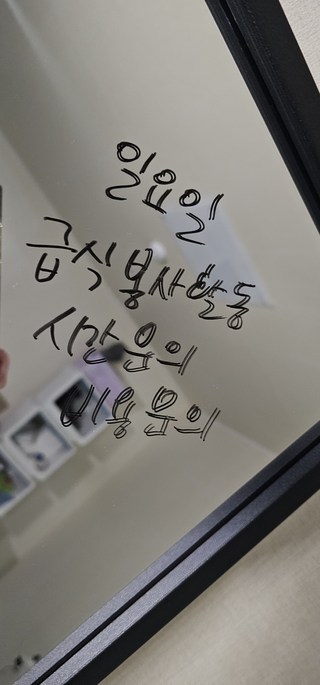 일요일
급식 봉사활동
시간 문의
비용 문의